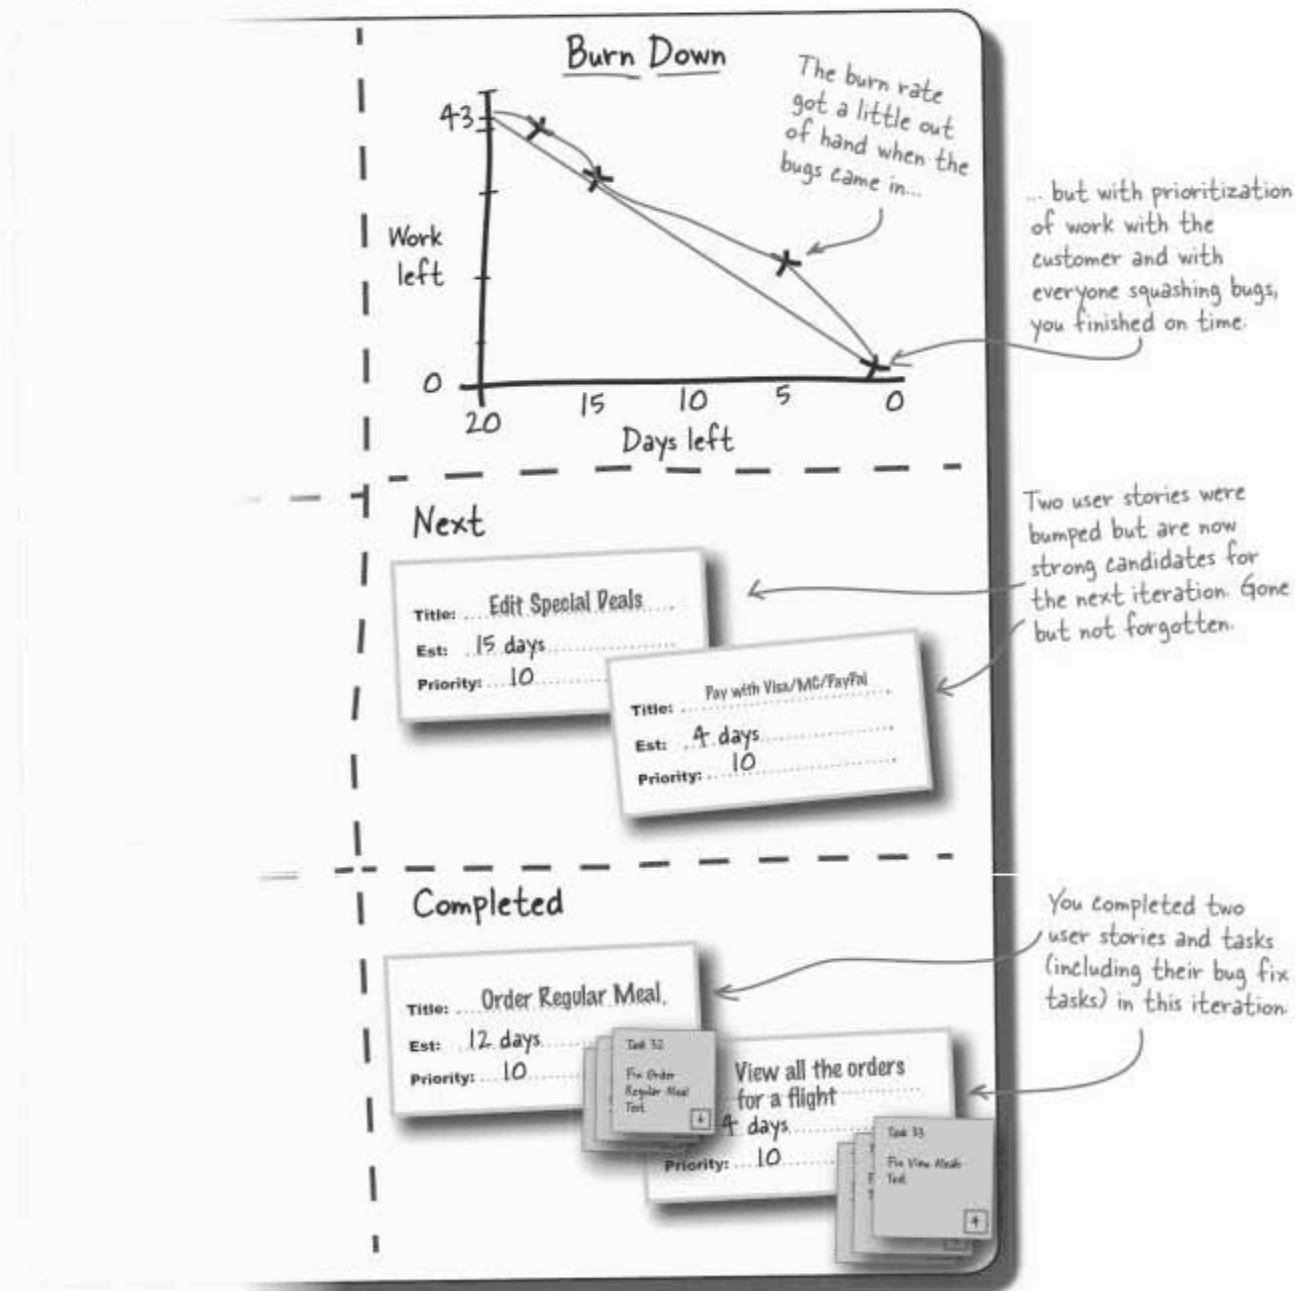 Burn Down
The burn rate
got a little out
of hand when the
bugs came in...
43
Work
left
0
20
15
10
5
0
Days left
... but with prioritization
of work with the
customer and with
everyone squashing bugs,
you finished on time.
Next
Title: Edit Special Deals
Est: 15 days
Priority: 10
Title: Pay with Visa/MC/PayPal
Est: 4 days
Priority: 10
Two user stories were
bumped but are now
strong candidates for
the next iteration. Gone
but not forgotten.
Completed
Title: Order Regular Meal
Est: 12 days
Priority: 10
Task 32
Fix Order
Regular Meal
Test
View all the orders
for a flight
4 days
Priority: 10
Task 33
Fix View Meals
Test
You completed two
user stories and tasks
(including their bug fix
tasks) in this iteration.